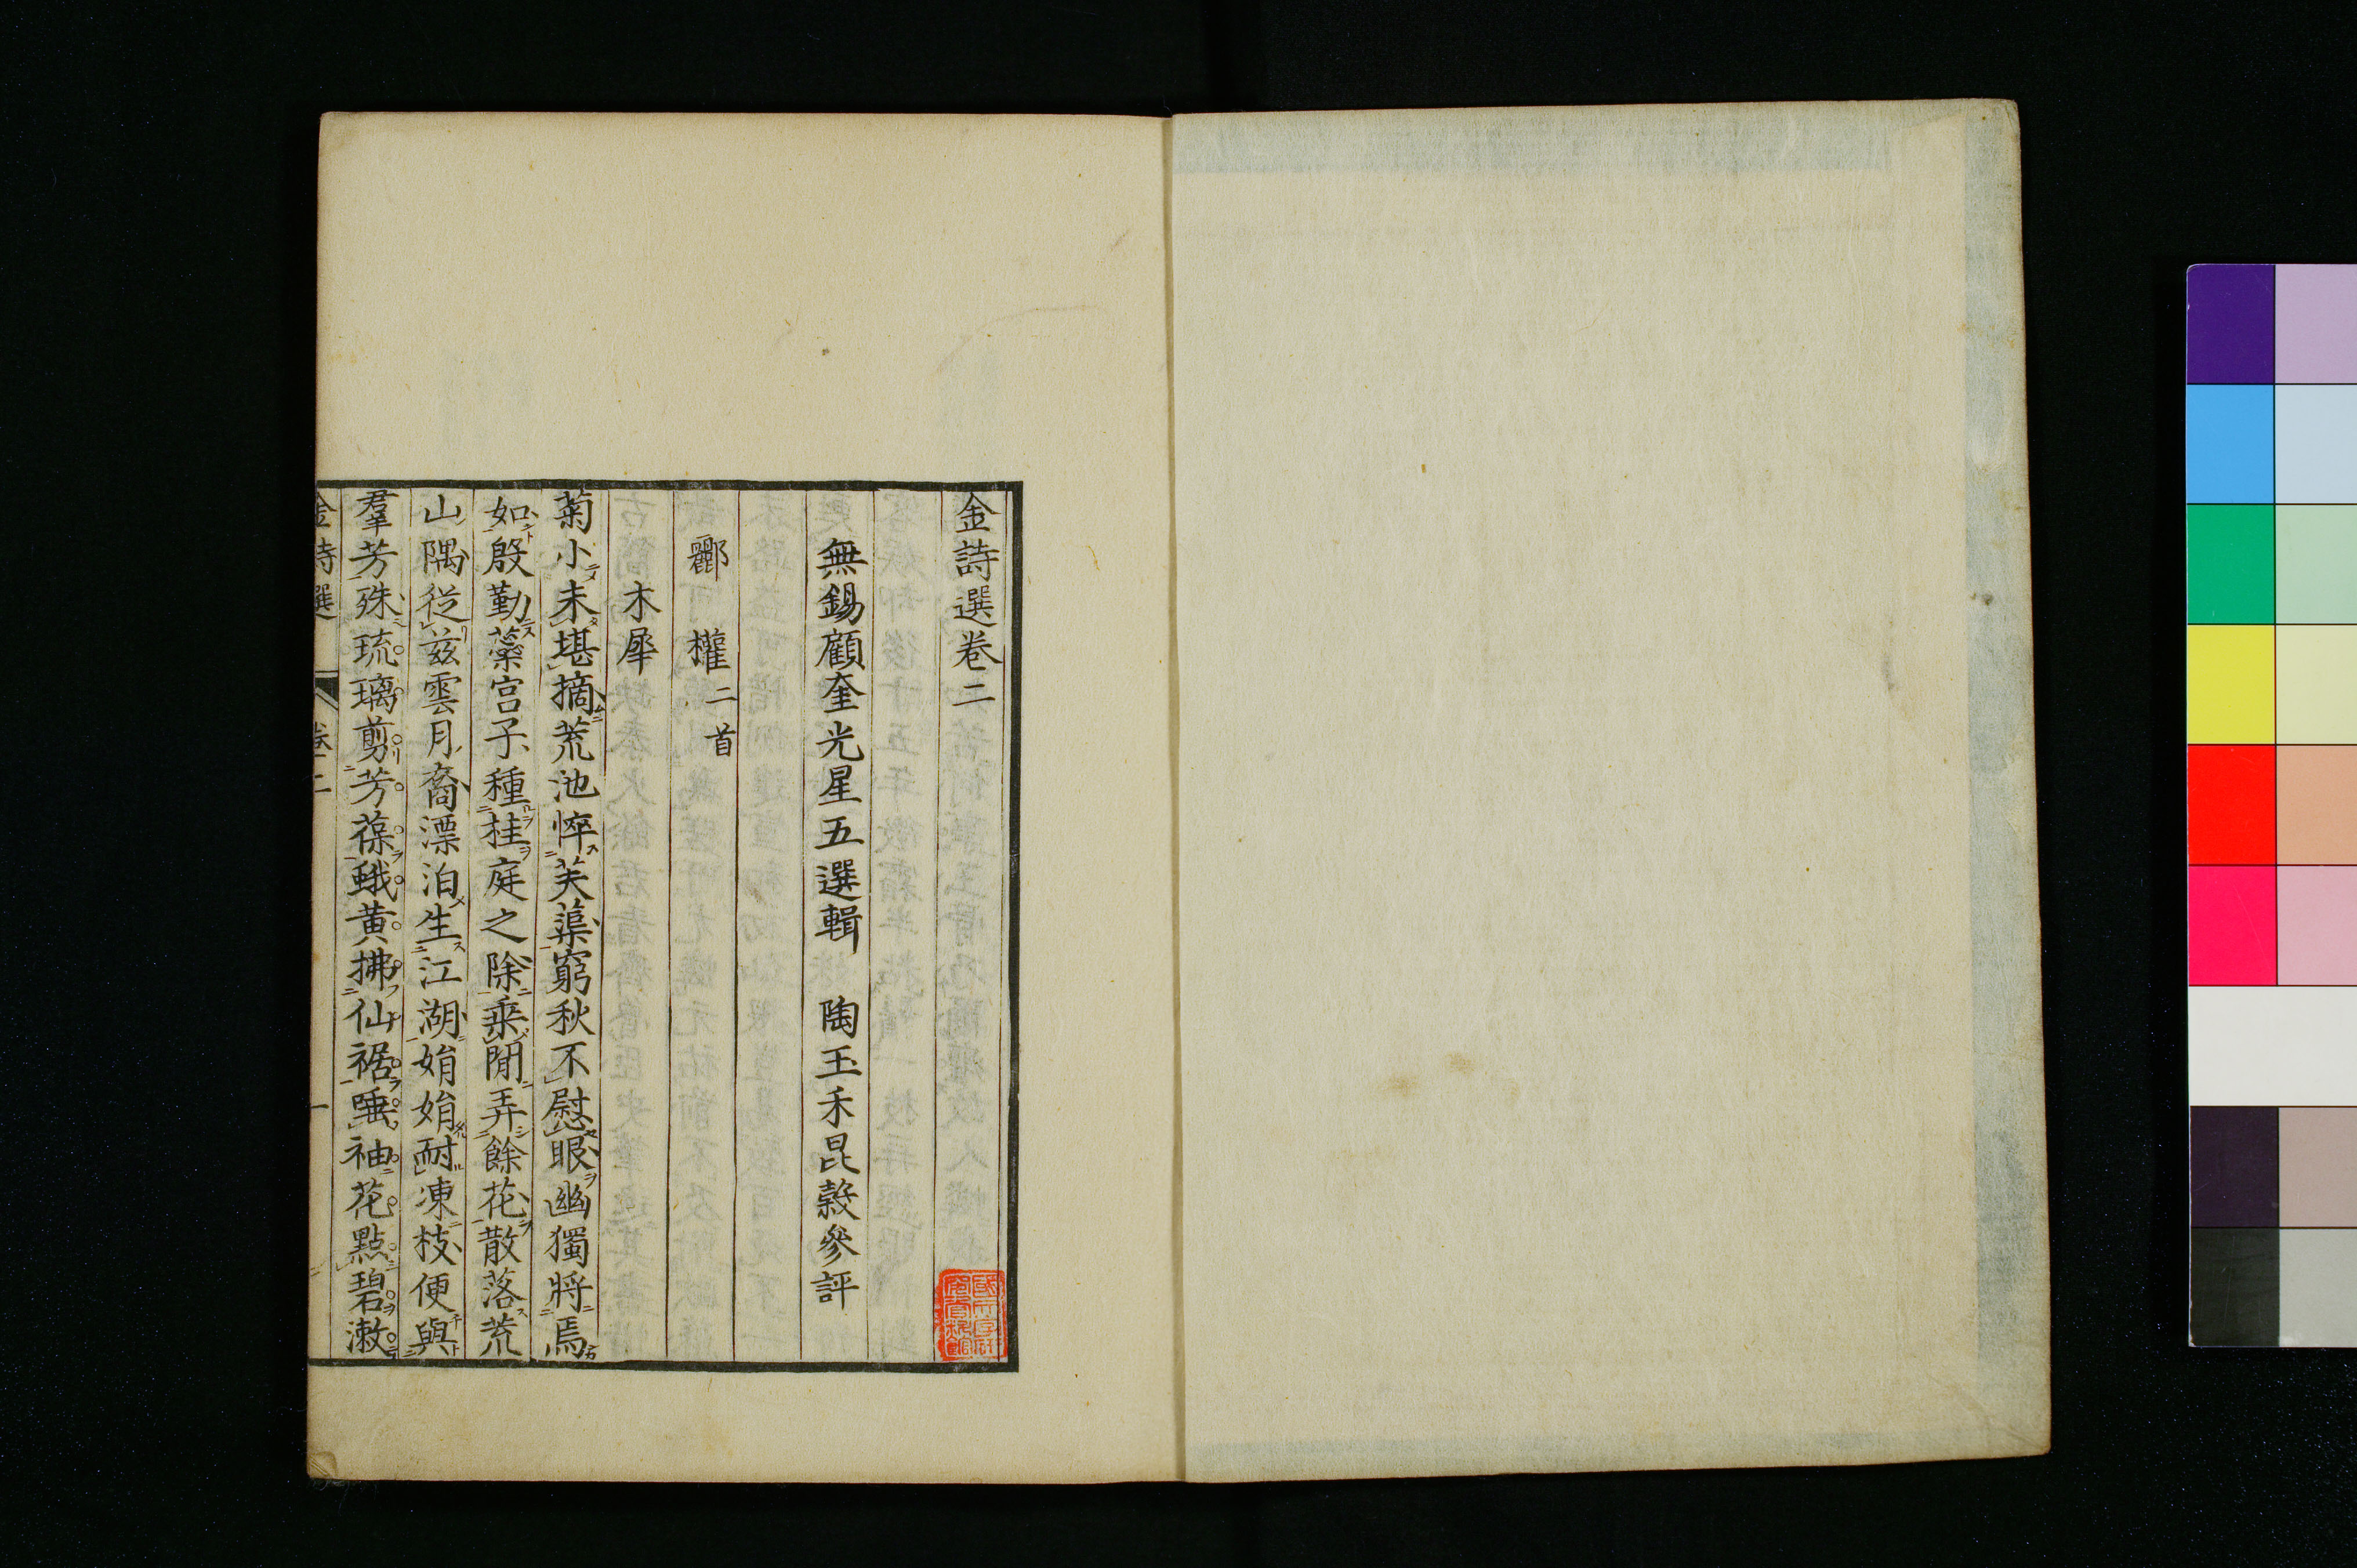 金詩選卷二
無錫顧奎光星五選輯　陶玉禾昆穀參評
酈　權二首
木犀
菊小未堪摘荒池悴芙蕖窮秋不慰眼幽獨將焉
如殷勤蘂宮子種桂庭之除乘閒弄餘花散落荒
山隅從兹雲月裔漂泊生江湖娟娟耐凍枝便與
羣芳殊琉璃剪芳葆蛾黄拂仙裾唾袖花點碧漱
金詩選　卷二　一